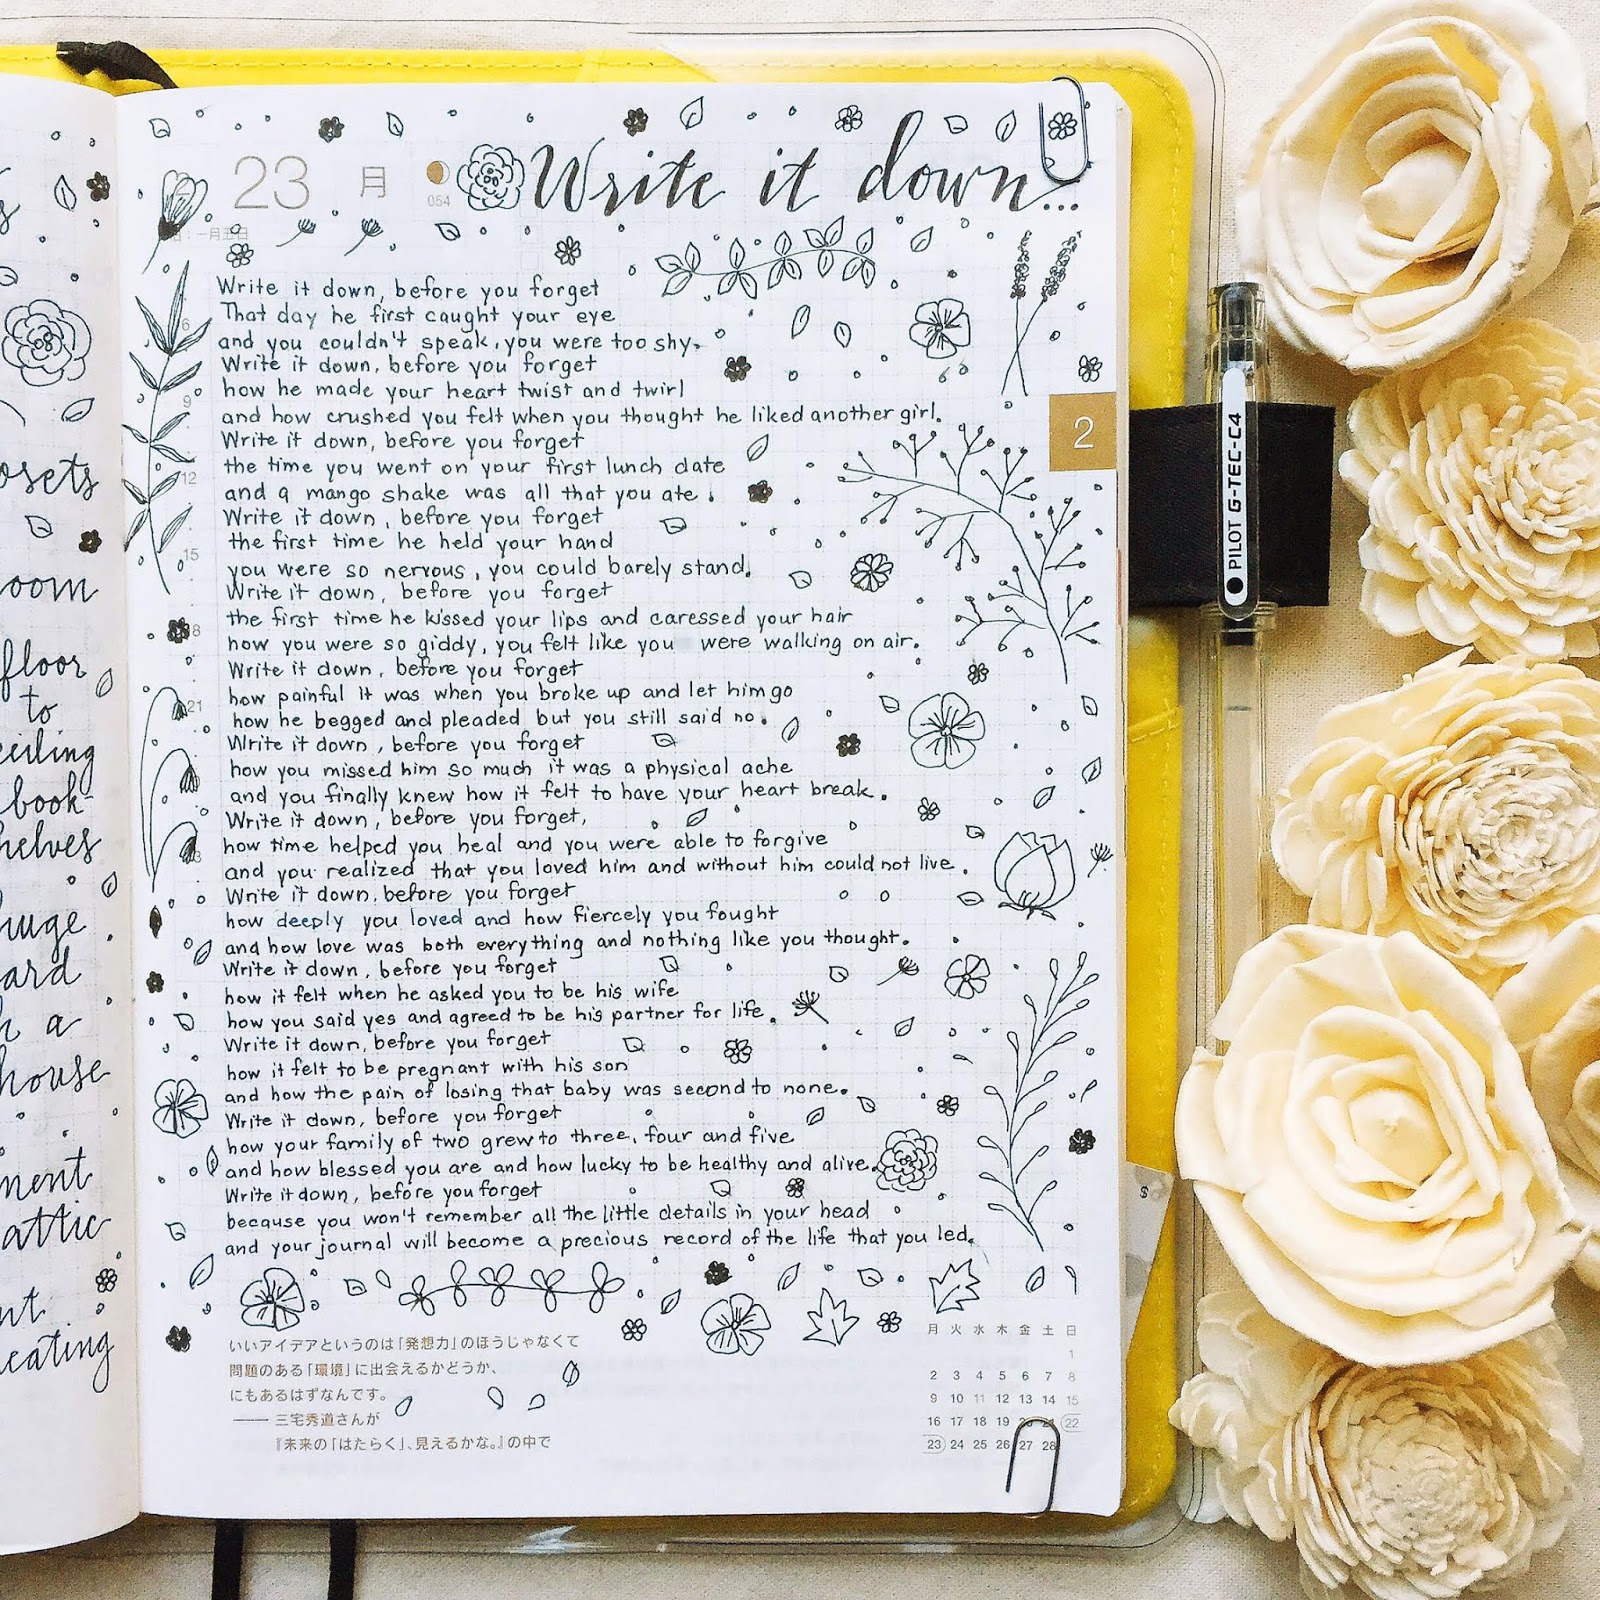 osets
oom
floor
to
eiling
book-
helves
huge
ard
h a
house
ment
attic
nt
eating
23 月
054
Write it down...
Write it down, before you forget
That day he first caught your eye
and you couldn't speak, you were too shy.
Write it down, before you forget
how he made your heart twist and twirl
and how crushed you felt when you thought he liked another girl.
Write it down, before you forget
the time you went on your first lunch date
and a mango shake was all that you ate.
Write it down, before you forget
the first time he held your hand
you were so nervous, you could barely stand.
Write it down, before you forget
the first time he kissed your lips and caressed your hair
how you were so giddy, you felt like you were walking on air.
Write it down, before you forget
how painful it was when you broke up and let him go
how he begged and pleaded but you still said no.
Write it down, before you forget
how you missed him so much it was a physical ache
and you finally knew how it felt to have your heart break.
Write it down, before you forget,
how time helped you heal and you were able to forgive
and you realized that you loved him and without him could not live.
Write it down, before you forget
how deeply you loved and how fiercely you fought
and how love was both everything and nothing like you thought.
Write it down, before you forget
how it felt when he asked you to be his wife
how you said yes and agreed to be his partner for life.
Write it down, before you forget
how it felt to be pregnant with his son
and how the pain of losing that baby was second to none.
Write it down, before you forget
how your family of two grew to three, four and five
and how blessed you are and how lucky to be healthy and alive.
Write it down, before you forget
because you won't remember all the little details in your head
and your journal will become a precious record of the life that you led.
6
9
12
15
18
21
2
PILOT G-TEC-C4
$
いいアイデアというのは「発想力」のほうじゃなくて
問題のある「環境」に出会えるかどうか、
にもあるはずなんです。
── 三宅秀道さんが
『未来の「はたらく」、見えるかな。』の中で
月 火 水 木 金 土 日
1
2 3 4 5 6 7 8
9 10 11 12 13 14 15
16 17 18 19 20 21 22
23 24 25 26 27 28